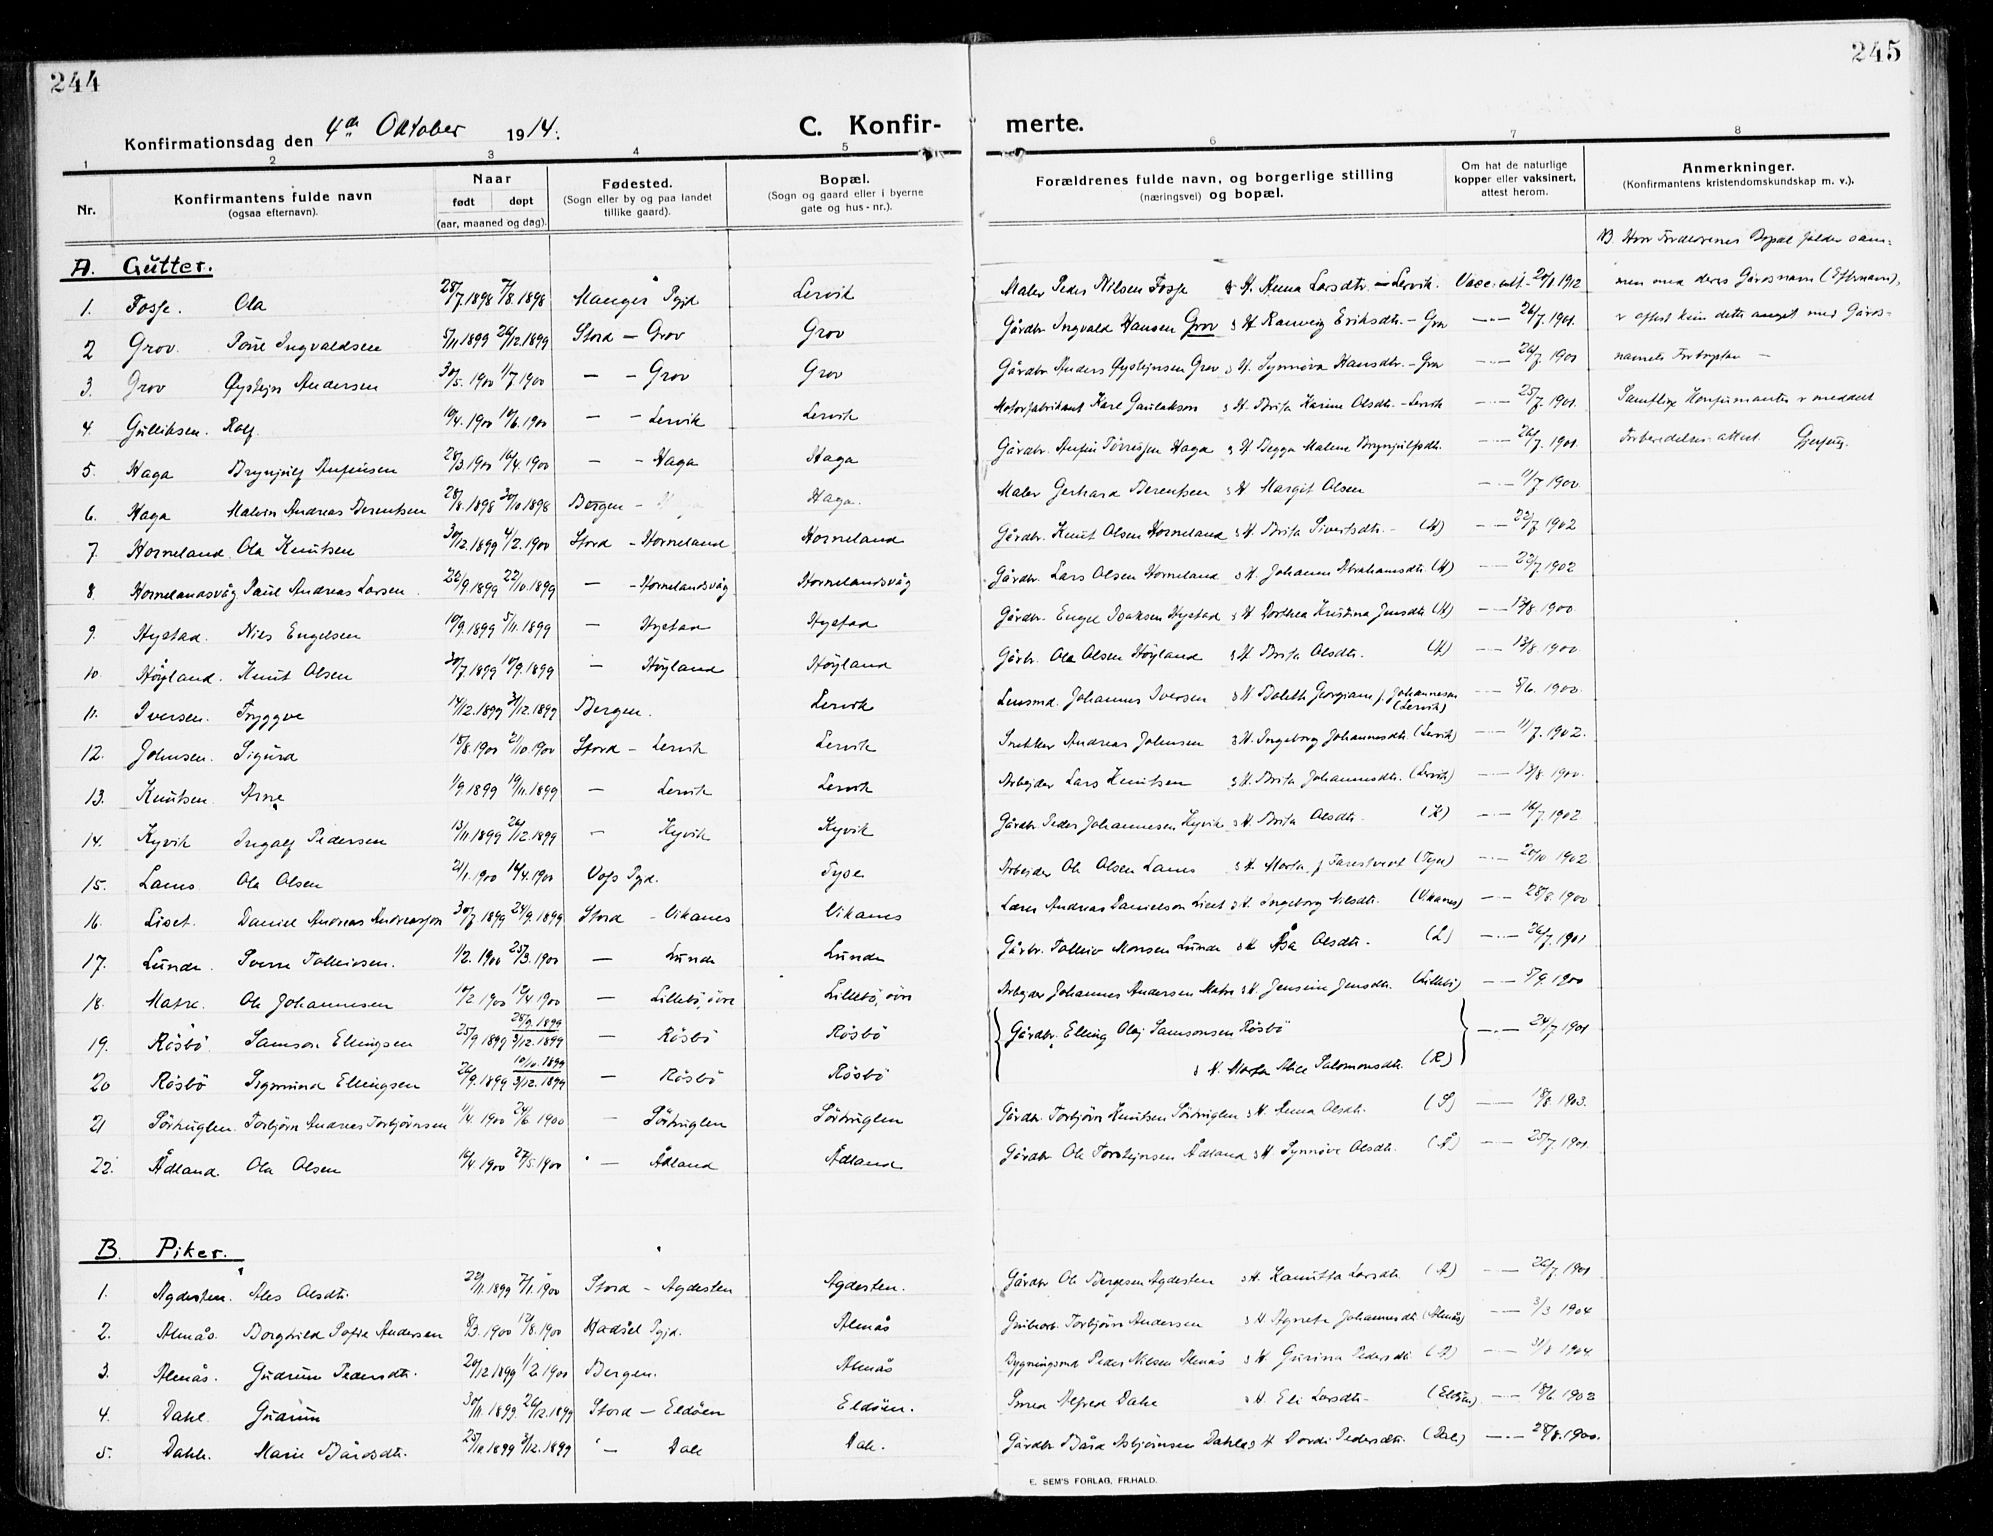 244
245
Konfirmationsdag den 4de Oktober 1914.
C. Konfir- merte.
1 2 3 4 5 6 7 8
Nr.
Konfirmantens fulde navn
(ogsaa efternavn).
Naar
født døpt
(aar, maaned og dag).
Fødested.
(Sogn eller by og paa landet
tillike gaard).
Bopæl.
(Sogn og gaard eller i byerne
gate og hus-nr.).
Forældrenes fulde navn, og borgerlige stilling
(næringsvei) og bopæl.
Om hat de naturlige
kopper eller vaksinert,
attest herom.
Anmerkninger.
(Konfirmantens kristendomskundskap m. v.).
NB. Hvor Forældrenes Bopæl falder sam=
men med deres Gårdsnavn (Efternavn),
r oftest kun dette anget med Gårds-
namets Forbogstav —
Samtlige Konfirmanter r meddelt
Forberedelses attest.
A. Gutter.
1. Fosse. Ola 28/7 1898 7/8. 1898 Manger Pgjd Lervik Maler Peder Nilsen Fosse & H. Anna Larsdtr. — Lervik. Vacc. 20/11 1912
2 Grov. Ingvaldsen 5/11. 1899 26/12. 1899 Stord — Grov Grov Gårdbr. Ingvald Hansen Grov & H Ranveig Eriksdtr. — Grov —"— 26/7. 1901.
3. Grov Øystejn Andersen 30/5. 1900 1/7 1900 — — Grov Grov Gårdbr Anders Øystejnsen Grov & H. Synnøva Hansdtr. — Grov —"— 26/7 1901
4. Gulliksen. Rolf. 10/4. 1900 10/6. 1900 — — Lervik Lervik Motorfabrikant Karl Gulliksen & H. Brita Karine Olsdtr. — Lervik —"— 25/7. 1901.
5. Haga Brynjulf Anfinsen 28/3. 1900 16/4. 1900 — — Haga Haga Gårdbr. Anfin Haga & H Malene Brynjulfsdtr. —"— 26/7. 1901.
6. Haga Malvin Andreas Berentsen 28/8. 1898 30/10 1898 Bergen — Haga. Maler Gerhard Berentsen & H Margit Olsen —"— 11/7 1900
7. Horneland Ola Knutsen 30/12. 1899 4/2. 1900 Stord — Horneland Horneland Gårdbr. Knut Olsen Horneland & H. Brita Sivertsdtr — (H) —"— 22/7 1902
8. Hornelandsvåg Paul Andreas Larsen. 22/9. 1899 22/10. 1899 — — Hornelandsvåg Hornelandsvåg Gårdbr. Lars Olsen Horneland & H. Johanna Abrahamsdtr. (H) —"— 22/7 1902
9. Hystad. Nils Engelsen 10/9. 1899 5/11. 1899 — Hystad Hystad Gårdbr. Engel Isaksen Hystad & H Dorthea Kristina Jensdtr (H) —"— 13/8. 1900
10. Höyland. Knut Olsen 30/7. 1899 10/9. 1899 — Höyland Höyland Gårbr. Ola Olsen Höyland & H. Brita Olsdtr. (H) —"— 13/8. 1900
11. Iversen. Tryggve 14/12. 1899 31/12. 1899 Bergen. Lervik Lensmd. Johannes Iversen & H Georgiane f. Johannesen (Lervik) —"— 5/6. 1900.
12. Johnsen. Sigurd 18/8. 1900 21/10. 1900 Stord — Lervik Lervik Snekker Andreas Johnsen & H. Ingeborg Johannesdtr. (Lervik) —"— 11/7. 1902.
13. Knutsen. Arne 1/9. 1899 19/11. 1899 — Lervik Lervik Arbejder Lars Knutsen & H. Brita Johannesdtr. (Lervik) —"— 13/8. 1900.
14. Kyvik Ingolf Pedersen 13/11. 1899 26/12. 1899 — Kyvik Kyvik Gårdbr Peder Johannesen Kyvik & H. Brita Olsdtr. (K) —"— 16/7. 1902
15. Lams Ola Olsen 21/1. 1900 16/4. 1900 Voss Pgjd. Tyse Arbejder Ole Olsen Lams & H. Marta f. (Tyse) —"— 20/10 1902
16. Liset. Daniel Andreas Andreassen 30/7. 1899 24/9. 1899 Stord — Vikanes Vikanes Lærer Andreas Danielsen Liset & H. Ingeborg Nilsdtr. (Vikanes) —"— 28/8. 1900
17. Lunde. Sverre Tolleivsen. 1/2. 1900 25/3. 1900 — Lunde Lunde Gårbr. Tolleiv Monsen Lunde & H Åsa Olsdtr. (L) —"— 26/7. 1901
18. Matre. Ole Johannesen 10/2 1900 12/4 1900 — Lillebö, övre Lillebö, övre Arbejder Johannes Andersen Matre & H. Jensine Jensdtr. (Lillebö) —"— 5/9. 1900
19. Rösbö. Samson Ellingsen 25/9. 1899 28/9. 1899 3/12. 1899 — Rösbö Rösbö Gårdbr. Elling Olaj Samsonsen Rösbö —"— 24/7 1901
20 Rösbö Sigmund Ellingsen 26/9. 1899 10/10. 1899 3/12. 1899 — Rösbö Rösbö & H. Marta Alice Salomonsdtr. (R)
21 Sörhuglen. Torbjörn Andreas Torbjörnsen 11/4. 1900 24/6 1900 — Sörhuglen Sörhuglen Gårdbr. Torbjörn Knutsen Sörhuglen & H. Anna Olsdtr. (S) —"— 18/8. 1903.
22. Ådland. Ola Olsen 16/4. 1900 27/5. 1900 " — Ådland Ådland Gårdbr Ole Torstejnsen Ådland & H Synnöve Olsdtr. (Å) —"— 25/7. 1901.
B. Piker.
1. Agdesten. Ales Olsdtr. 22/11. 1899 7/1. 1900 Stord — Agdesten Agdesten. Gårdbr Ole Bergesen Agdesten & H. Kanutta Larsdtr. (A) —"— 26/7. 1901
2. Almås. Borghild Sofie Andersen 8/3. 1900 12/8. 1900 Hadsel Pgjd. Almås Torbjörn Andersen & H Agnete Johannesdtr (Almås) —"— 3/3 1904
3. Almås. Gudrun Pedersdtr. 20/12 1899 1/2. 1900 Bergen. Almås Bygningsmd Peder Nilsen Almås & H. Gurina Pedersdtr (A) —"— 31/8 1904
4. Dahl. Gudrun 30/11. 1899. 26/12. 1899 Stord — Eldöen Eldöen. Smed Alfred Dahl & H. Eli Larsdtr — (Eldöen) —"— 18/6 1902
5. Dahle. Marie Bårdsdtr. 25/10 1899 3/12. 1899 " — Dale Dale. Gårdbr Bård Asbjörnsen Dahle & H Dordi Pedersdtr. (Dale) —"— 28/8. 1900.
E. SEM'S FORLAG, FR.HALD.